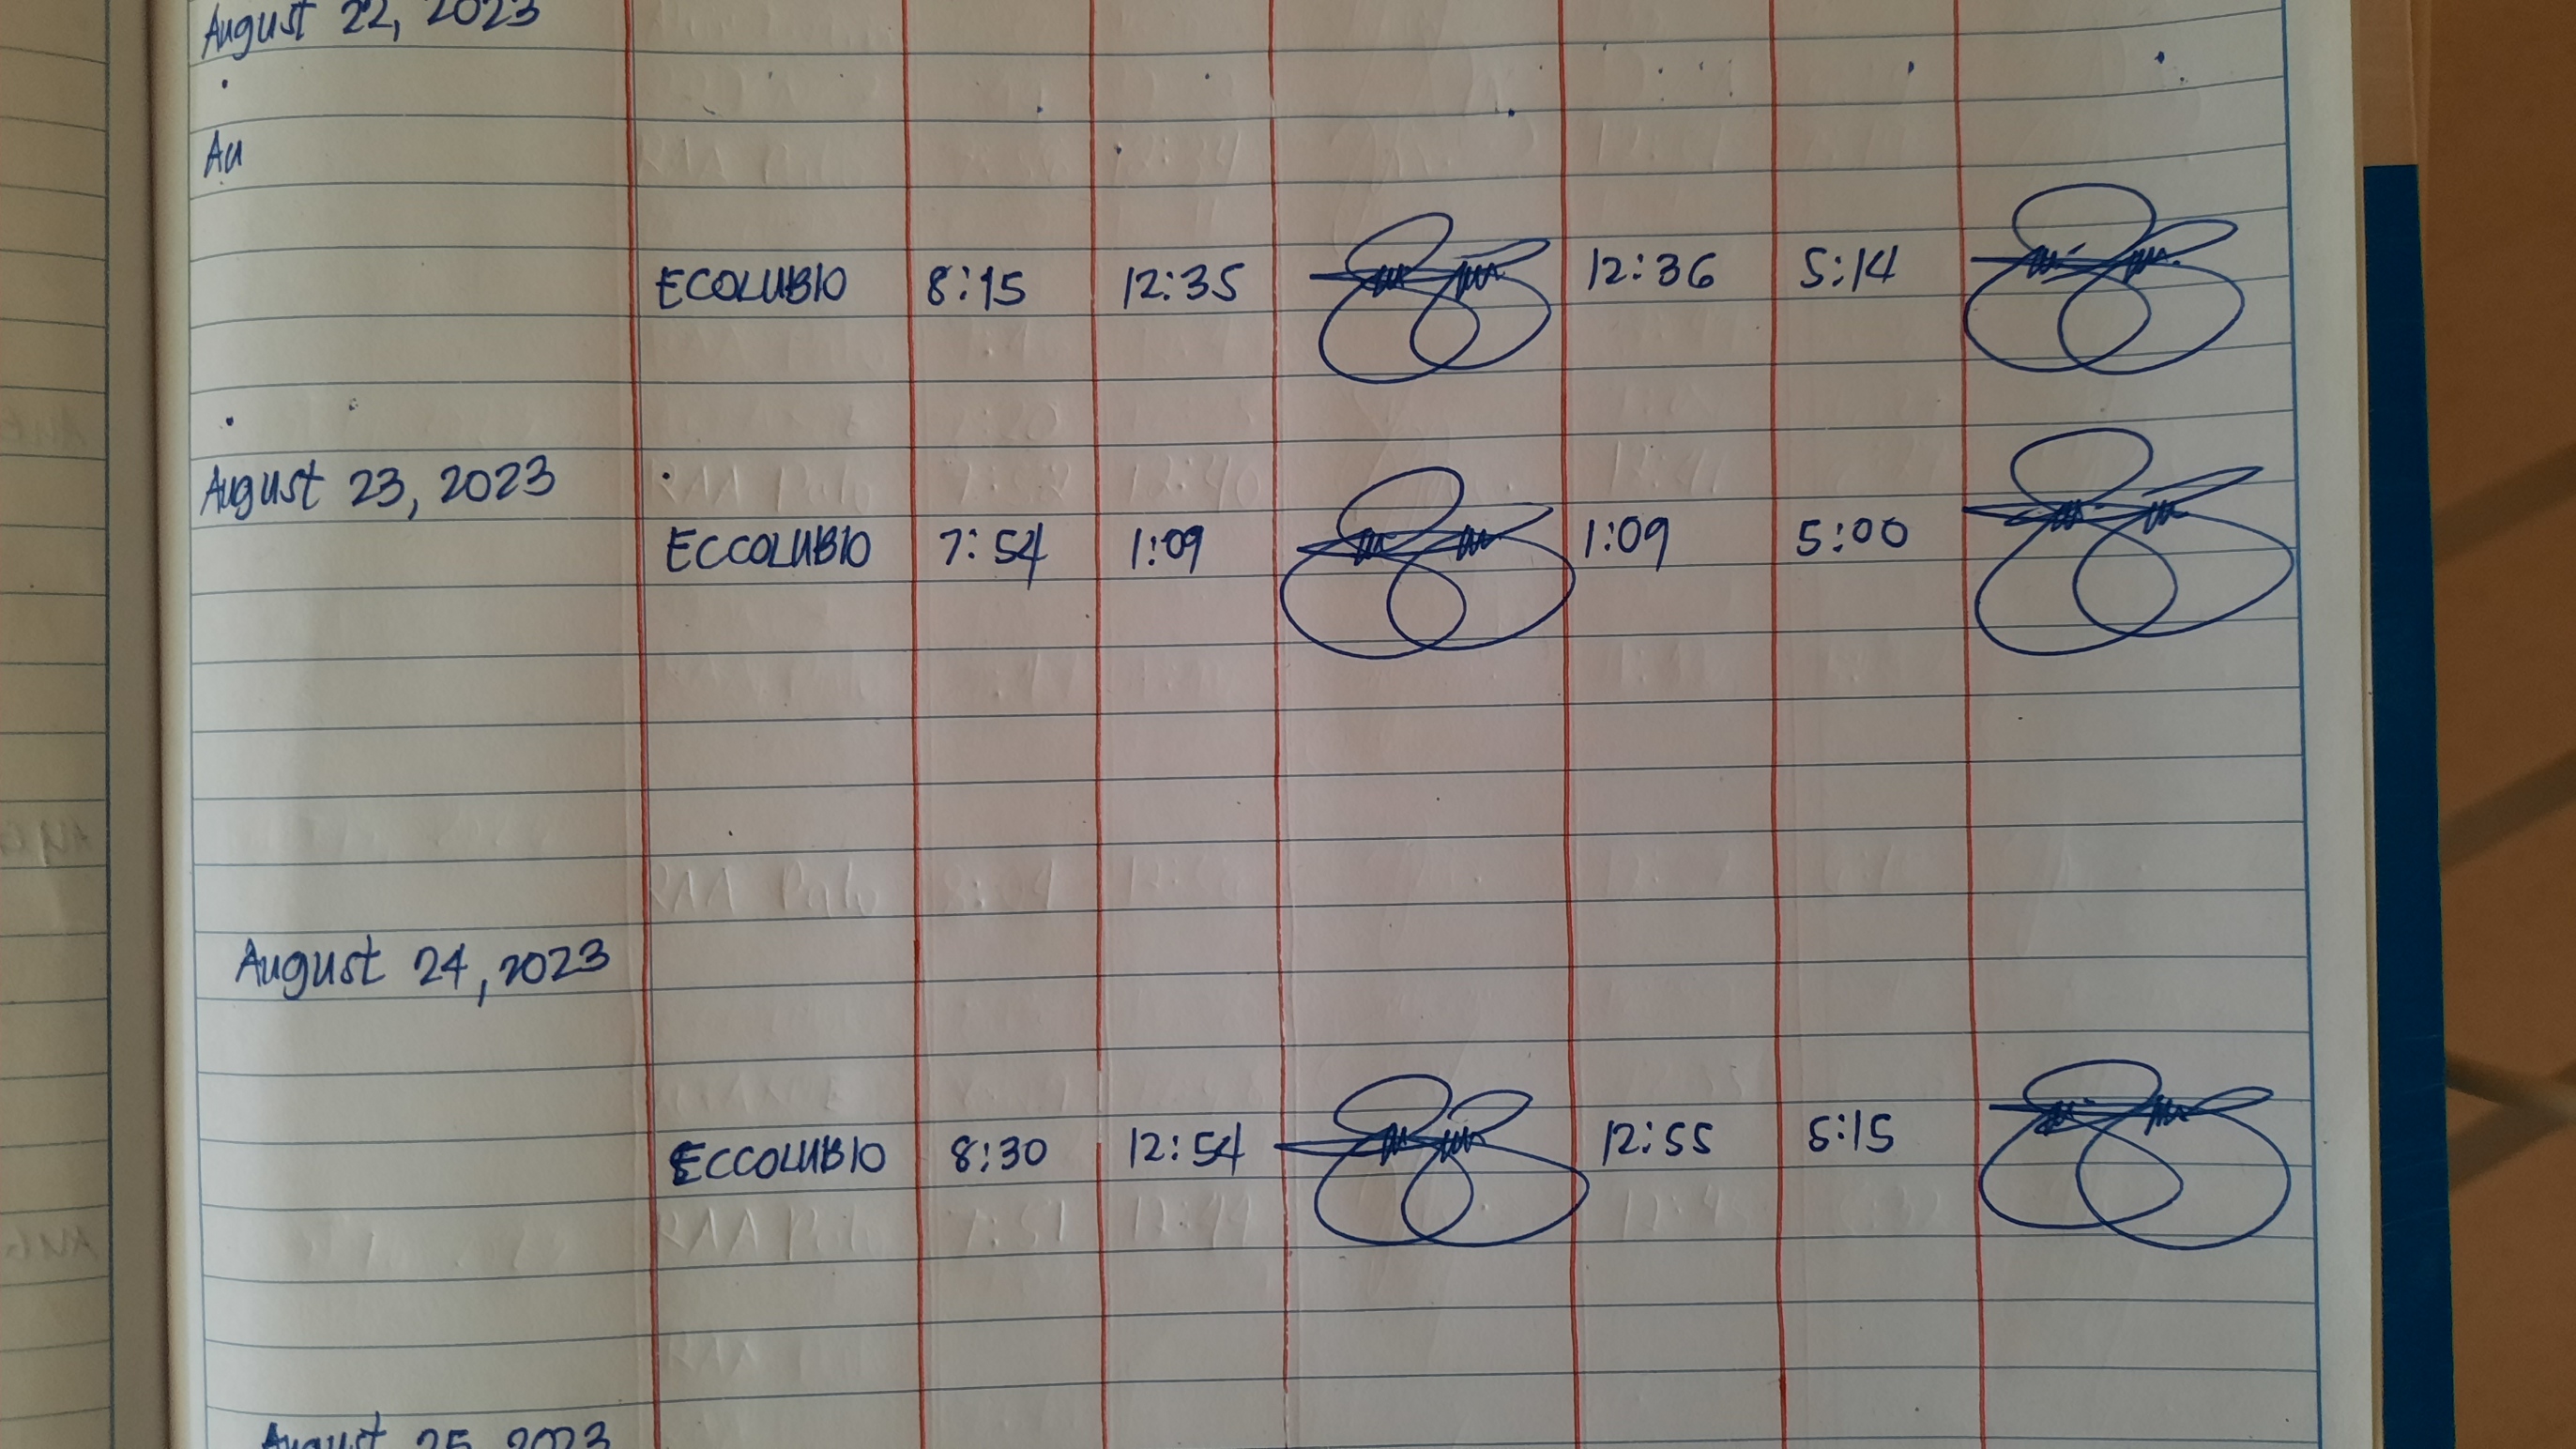 August 22, 2023
Au
ECOLUBIO 8:15 12:35 12:36 5:14
August 23, 2023
ECCOLUBIO 7:54 1:09 1:09 5:00
August 24, 2023
ECCOLUBIO 8:30 12:54 12:55 5:15
August 25, 2023